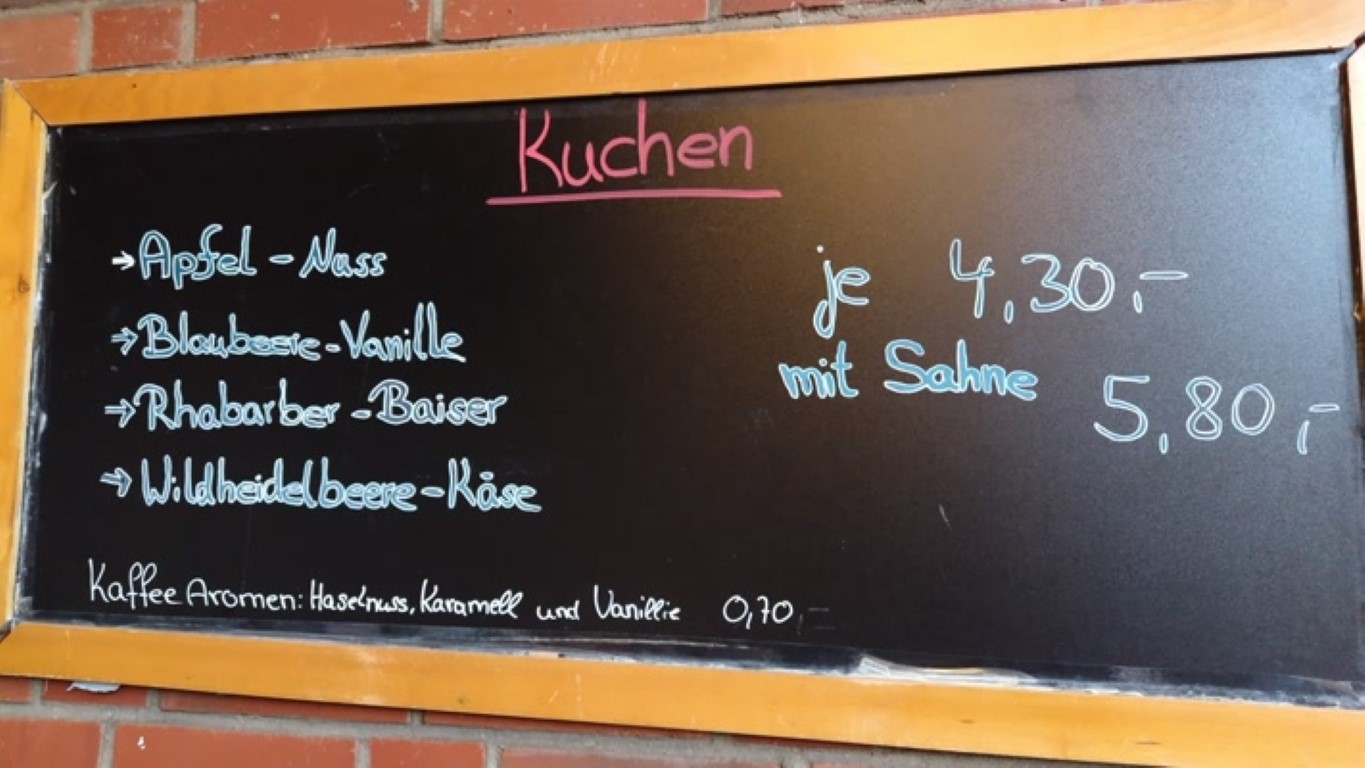 Kuchen
→ Apfel - Nuss
→ Blaubeere - Vanille
→ Rhabarber - Baiser
→ Wildheidelbeere - Käse
je 4,30,-
mit Sahne 5,80,-
Kaffee Aromen: Haselnuss, Karamell und Vanillie 0,70,-